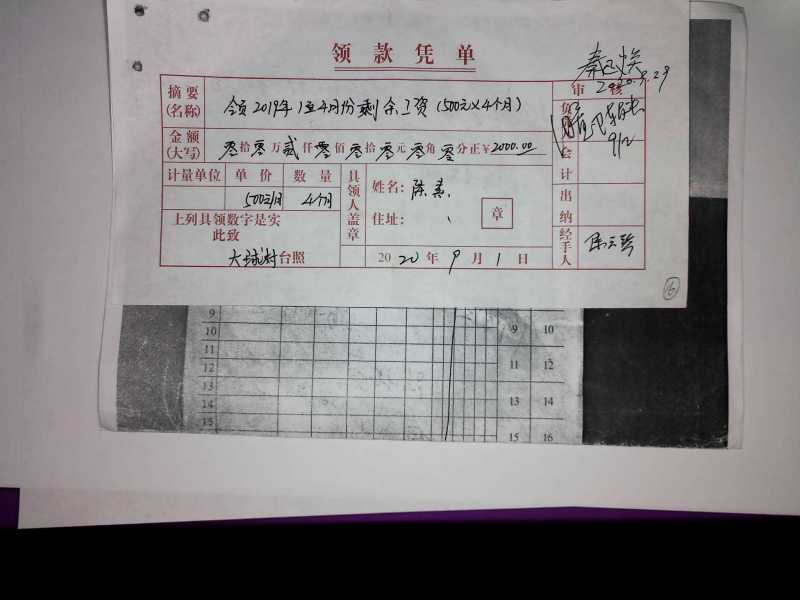 领款凭单
摘要
(名称)
领2019年1至4月份剩余工资(500元×4个月)
审核
2020.9.29
金额
(大写)
零拾零万贰仟零佰零拾零元零角零分正¥2000.00
负
会计
9/2
计量单位 单价 数量
500元/月 4个月
具领人盖章
姓名:陈
住址:
章
出纳
上列具领数字是实
此致
大球村台照
2020年9月1日
经手人
16
9 9 10
10
11 11 12
12
13 13 14
14
15 15 16